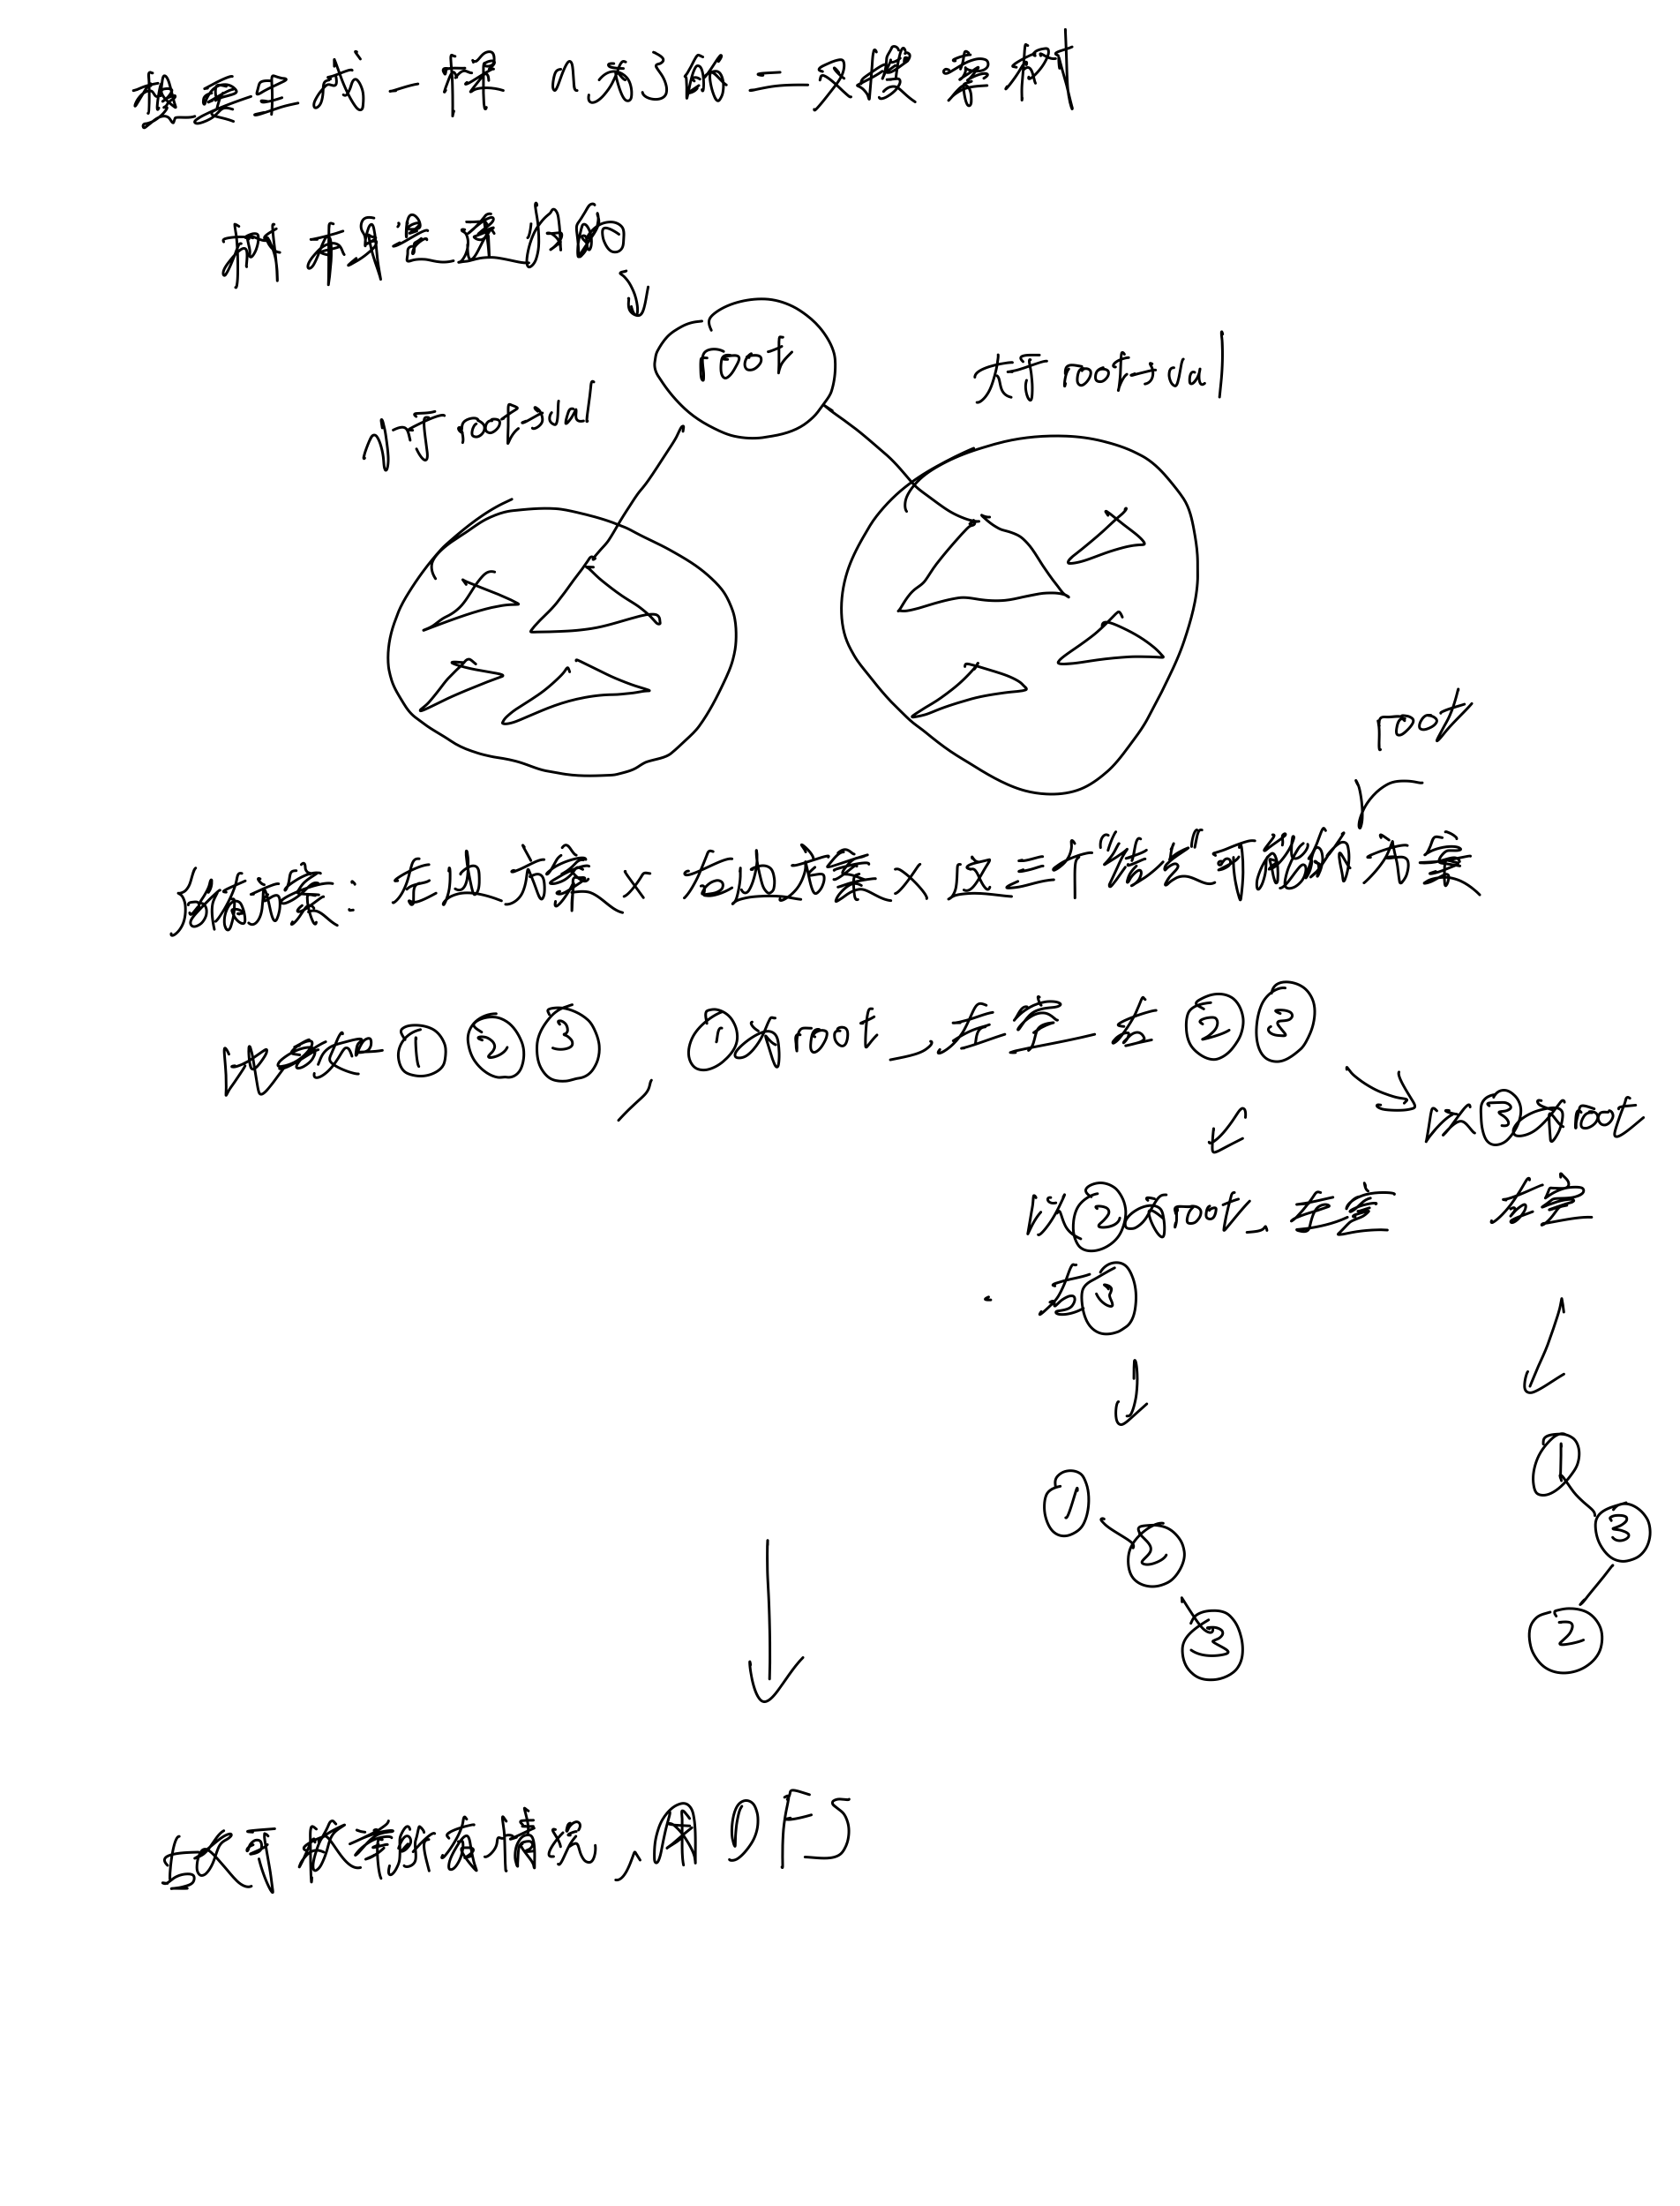 想要生成一棵 n为3的二叉搜索树
树本身是递归的
root
小于root->val
大于root->val
root
所有方案: 左边方案 × 右边方案 × 这三个结点可能的方案
比如 ① ② ③ , ①为root,左空 右 ② ③
以③为root
以②为root,左空
右空
右③
1
2
3
1
3
2
致于枚举所有情况,用DFS